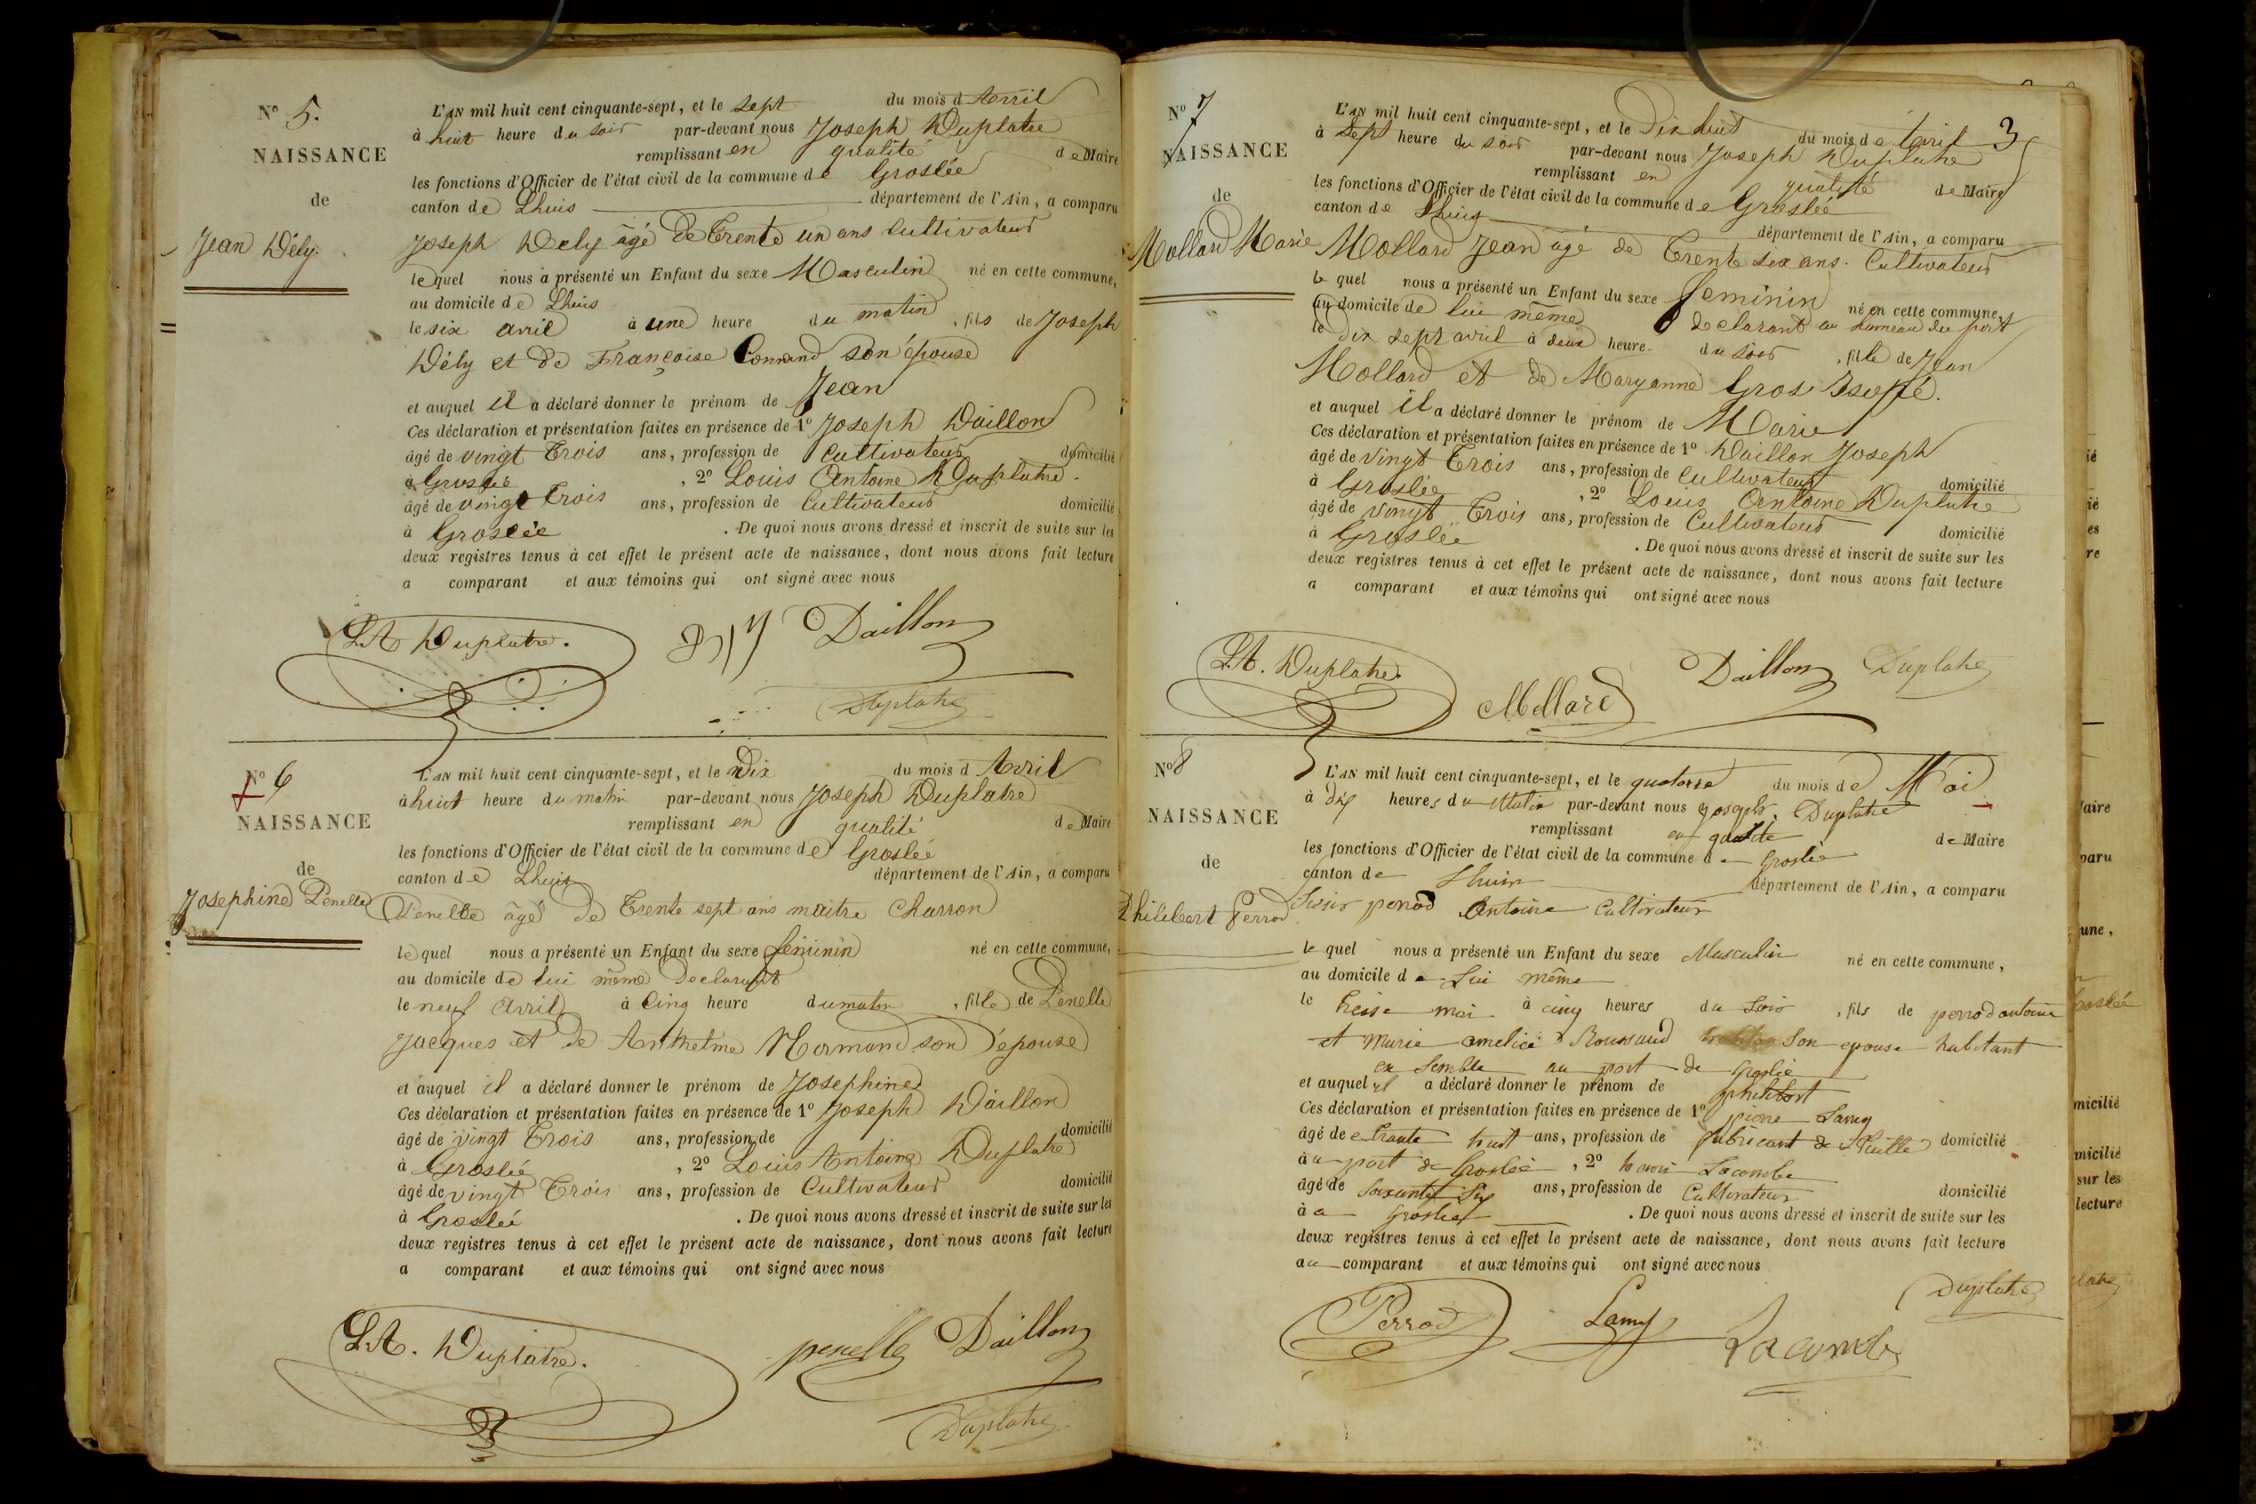 N° 5.
NAISSANCE
de
Jean Dély.
L'AN mil huit cent cinquante-sept, et le sept du mois d'Avril
à huit heure du soir par-devant nous Joseph Duplatre
remplissant en qualité de Maire
les fonctions d'Officier de l'état civil de la commune de Groslée
canton de Lhuis département de l'Ain, a comparu
Joseph Dely âgé de trente un ans cultivateur
lequel nous a présenté un Enfant du sexe Masculin né en cette commune,
au domicile de Lhuis
le six avril à une heure du matin, fils de Joseph
Dély et de Françoise son épouse
et auquel il a déclaré donner le prénom de Jean
Ces déclaration et présentation faites en présence de 1° Joseph Daillon
âgé de vingt trois ans, profession de cultivateur domicilié
à Groslée, 2° Louis Antoine Duplatre
âgé de vingt trois ans, profession de cultivateur domicilié
à Groslée. De quoi nous avons dressé et inscrit de suite sur les
deux registres tenus à cet effet le présent acte de naissance, dont nous avons fait lecture
a comparant et aux témoins qui ont signé avec nous
LA Duplatre. Daillon
Duplatre
N° 6
NAISSANCE
de
Josephine Penelle
L'AN mil huit cent cinquante-sept, et le Dix du mois d'Avril
à huit heure du matin par-devant nous Joseph Duplatre
remplissant en qualité de Maire
les fonctions d'Officier de l'état civil de la commune de Groslée
canton de Lhuis département de l'Ain, a comparu
Penelle âgé de trente sept ans maitre charron
lequel nous a présenté un Enfant du sexe féminin né en cette commune,
au domicile de lui même déclarant
le neuf avril à cinq heure du matin, fille de Penelle
Jacques et de Anthelme Normand son épouse
et auquel il a déclaré donner le prénom de Josephine
Ces déclaration et présentation faites en présence de 1° Joseph Daillon
âgé de vingt trois ans, profession de domicilié
à Groslée, 2° Louis Antoine Duplatre
âgé de vingt trois ans, profession de cultivateur domicilié
à Groslée. De quoi nous avons dressé et inscrit de suite sur les
deux registres tenus à cet effet le présent acte de naissance, dont nous avons fait lecture
a comparant et aux témoins qui ont signé avec nous
LA. Duplatre. penelle Daillon
Duplatre
3
N° 7
NAISSANCE
de
Mollard Marie
L'AN mil huit cent cinquante-sept, et le Dix huit du mois de avril
à sept heure du soir par-devant nous Joseph Duplatre
remplissant en qualité de Maire
les fonctions d'Officier de l'état civil de la commune de Groslée
canton de Lhuis département de l'Ain, a comparu
Mollard Jean âgé de trente six ans. Cultivateur
le quel nous a présenté un Enfant du sexe feminin né en cette commune,
au domicile de lui même déclarant au hameau du port
le dix sept avril à deux heure du soir, fille de Jean
Mollard et de Maryanne Gros
et auquel il a déclaré donner le prénom de Marie
Ces déclaration et présentation faites en présence de 1° Daillon Joseph
âgé de vingt trois ans, profession de cultivateur domicilié
à Groslée, 2° Louis Antoine Duplatre
âgé de vingt trois ans, profession de cultivateur domicilié
à Groslée. De quoi nous avons dressé et inscrit de suite sur les
deux registres tenus à cet effet le présent acte de naissance, dont nous avons fait lecture
a comparant et aux témoins qui ont signé avec nous
LA. Duplatre Mollard Daillon Duplatre
N° 8
NAISSANCE
de
Philibert Perrod
L'AN mil huit cent cinquante-sept, et le quatorze du mois de Mai
à dix heures du Matin par-devant nous joseph Duplatre
remplissant en qualité de Maire
les fonctions d'Officier de l'état civil de la commune de Groslée
canton de Lhuis département de l'Ain, a comparu
Sieur perrod Antoine Cultivateur
le quel nous a présenté un Enfant du sexe Masculin né en cette commune,
au domicile de Lui même
le treise mai à cinq heures du soir, fils de perrod antoine
et Marie amelie Roussaud son epouse habitant
en semble au port de Groslée
et auquel il a déclaré donner le prénom de philibert
Ces déclaration et présentation faites en présence de 1° pierre Lamy
âgé de trante huit ans, profession de fabricant de domicilié
à u port de Groslée, 2° Lacombe
âgé de soixante six ans, profession de Cultivateur domicilié
à a Groslée. De quoi nous avons dressé et inscrit de suite sur les
deux registres tenus à cet effet le présent acte de naissance, dont nous avons fait lecture
au comparant et aux témoins qui ont signé avec nous
Perrod Lamy Lacombe Duplatre